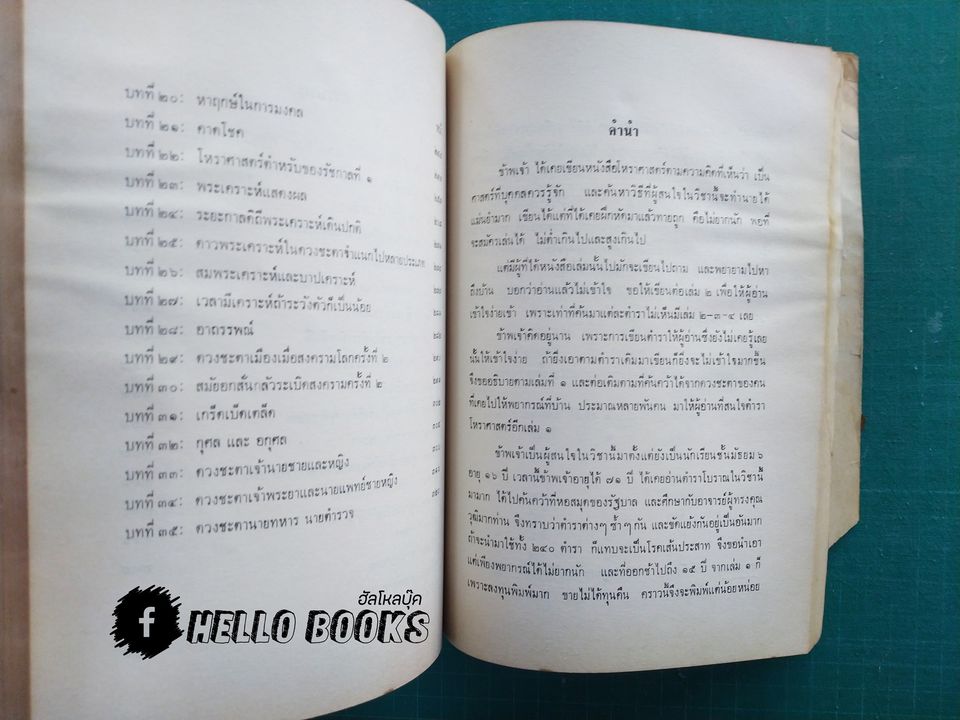 บทที่ ๒๐: หาฤกษ์ในการมงคล
บทที่ ๒๑: คาดโชค
บทที่ ๒๒: โหราศาสตร์ตำหรับของรัชกาลที่ ๑
บทที่ ๒๓: พระเคราะห์แสดงผล
บทที่ ๒๔: ระยะกาลดิถีพระเคราะห์เดินปกติ
บทที่ ๒๕: ดาวพระเคราะห์ในดวงชะตาจำแนกไปหลายประเภท
บทที่ ๒๖: สมพระเคราะห์และบาปเคราะห์
บทที่ ๒๗: เวลามีเคราะห์ถ้าระวังตัวก็เป็นน้อย
บทที่ ๒๘: อาถรรพณ์
บทที่ ๒๙: ดวงชะตาเมืองเมื่อสงครามโลกครั้งที่ ๒
บทที่ ๓๐: สมัยอกสั่นกลัวระเบิดสงครามครั้งที่ ๒
บทที่ ๓๑: เกร็ดเบ็ดเตล็ด
บทที่ ๓๒: กุศล และ อกุศล
บทที่ ๓๓: ดวงชะตาเจ้านายชายและหญิง
บทที่ ๓๔: ดวงชะตาเจ้าพระยาและนายแพทย์ชายหญิง
บทที่ ๓๕: ดวงชะตานายทหาร นายตำรวจ
ฮัลโหลบุ๊ค
f HELLO BOOKS
คำนำ
ข้าพเจ้า ได้เคยเขียนหนังสือโหราศาสตร์ตามความคิดที่เห็นว่า เป็น
ศาสตร์ที่บุคคลควรรู้จัก และค้นหาวิธีที่ผู้สนใจในวิชานี้จะทำนายได้
แม่นยำมาก เขียนได้แต่ที่ได้เคยฝึกหัดมาแล้วทายถูก คือไม่ยากนัก พอที่
จะสมัครเล่นได้ ไม่ต่ำเกินไปและสูงเกินไป
แต่มีผู้ที่ได้หนังสือเล่มนั้นไปมักจะเขียนไปถาม และพยายามไปหา
ถึงบ้าน บอกว่าอ่านแล้วไม่เข้าใจ ขอให้เขียนต่อเล่ม ๒ เพื่อให้ผู้อ่าน
เข้าใจง่ายเข้า เพราะเท่าที่ค้นมาแต่ละตำราไม่เห็นมีเล่ม ๒-๓-๔ เลย
ข้าพเจ้าคิดอยู่นาน เพราะการเขียนตำราให้ผู้อ่านซึ่งยังไม่เคยรู้เลย
นั้นให้เข้าใจง่าย ถ้ายิ่งเอาตามตำราเดิมมาเขียนก็ยิ่งจะไม่เข้าใจมากขึ้น
จึงขออธิบายตามเล่มที่ ๑ และต่อเติมตามที่ค้นคว้าได้จากดวงชะตาของคน
ที่เคยไปให้พยากรณ์ที่บ้าน ประมาณหลายพันคน มาให้ผู้อ่านที่สนใจตำรา
โหราศาสตร์อีกเล่ม ๑
ข้าพเจ้าเป็นผู้สนใจในวิชานี้มาตั้งแต่ยังเป็นนักเรียนชั้นมัธยม ๖
อายุ ๑๖ ปี เวลานี้ข้าพเจ้าอายุได้ ๗๑ ปี ได้เคยอ่านตำราโบราณในวิชานี้
มามาก ได้ไปค้นคว้าที่หอสมุดของรัฐบาล และศึกษากับอาจารย์ผู้ทรงคุณ
วุฒิมากท่าน จึงทราบว่าตำราต่างๆ ซ้ำๆ กัน และขัดแย้งกันอยู่เป็นอันมาก
ถ้าจะนำมาใช้ทั้ง ๒๔๐ ตำรา ก็แทบจะเป็นโรคเส้นประสาท จึงขอนำเอา
แต่เพียงพยากรณ์ได้ไม่ยากนัก และที่ออกช้าไปถึง ๑๕ ปี จากเล่ม ๑ ก็
เพราะลงทุนพิมพ์มาก ขายไม่ได้ทุนคืน คราวนี้จึงจะพิมพ์แต่น้อยหน่อย